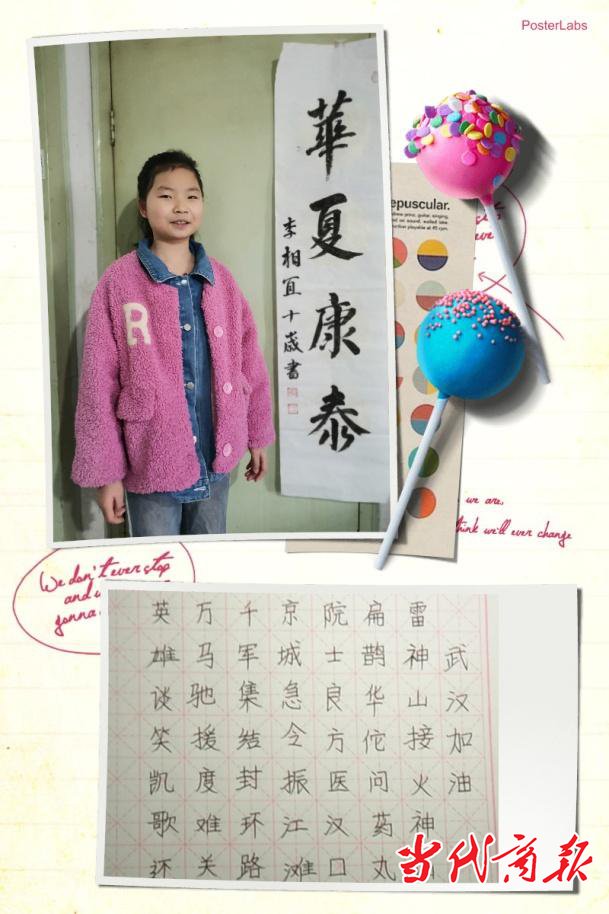 PosterLabs
華夏康泰
李相宜十歲書
epuscular.
we are,
think we'll ever change
We don't ever stop
and
gonna
武汉加油
雷神山接火神
扁鹊华佗问药丸
院士良方医汉口
京城急令振江滩
千军集结封环路
万马驰援度难关
英雄谈笑凯歌还
当代商报